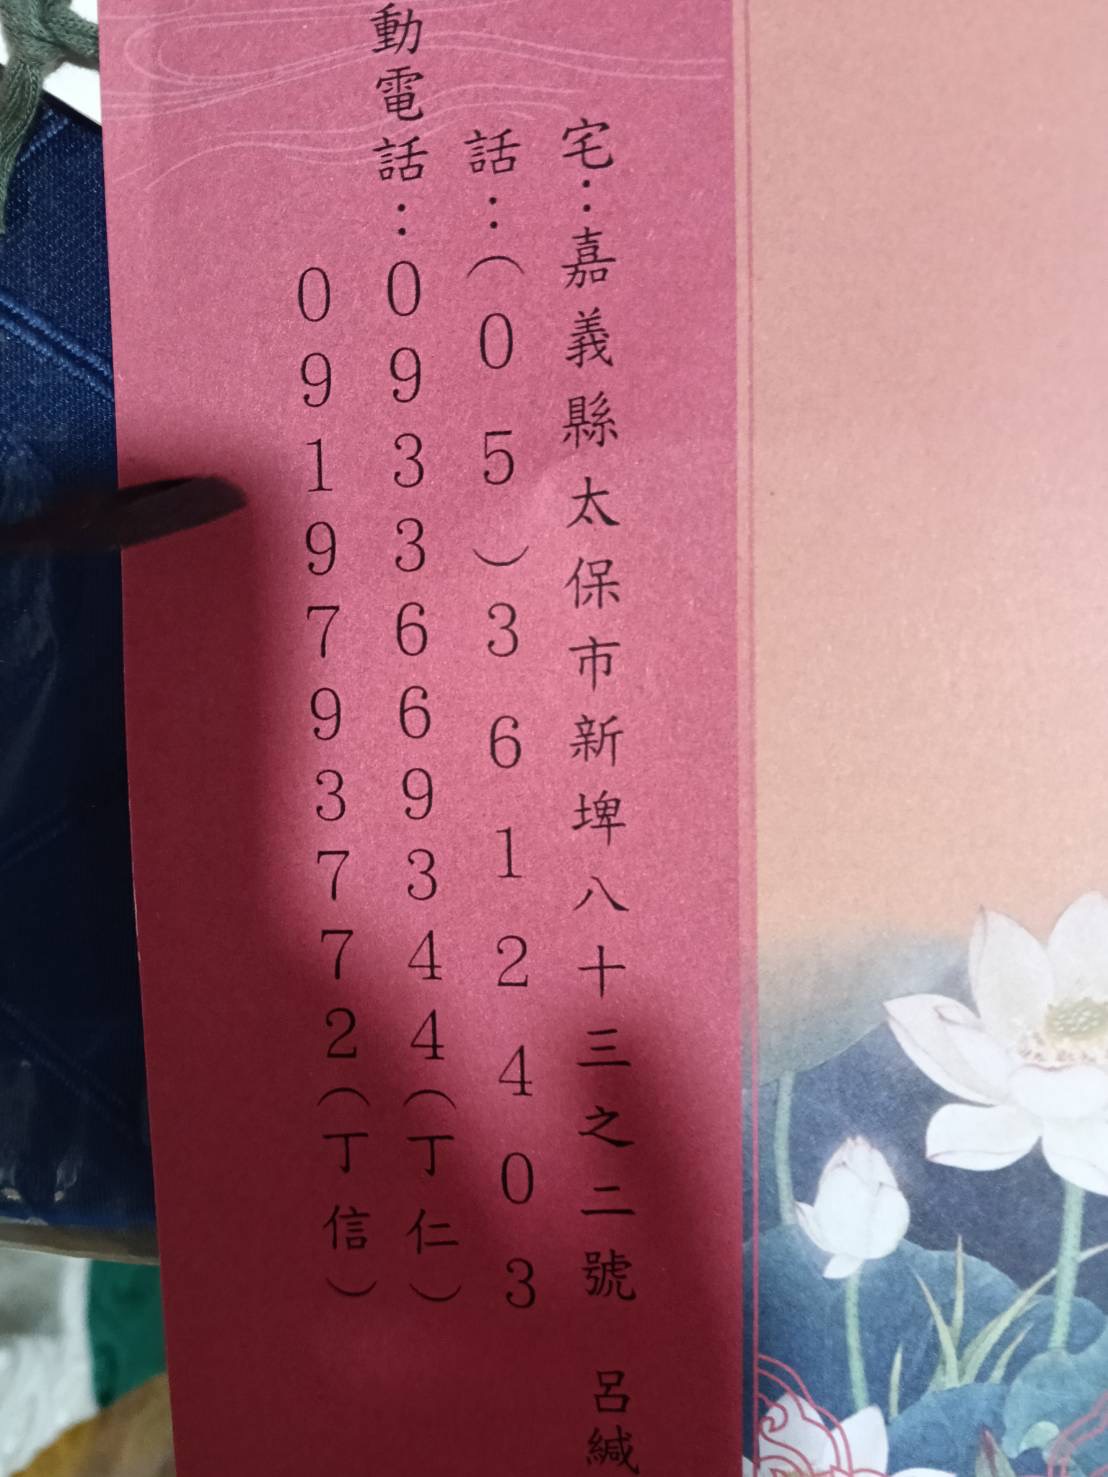 宅：嘉義縣太保市新埤八十三之二號 呂緘
話：（05）3612403
動電話：0933669344（丁仁）
0919793772（丁信）